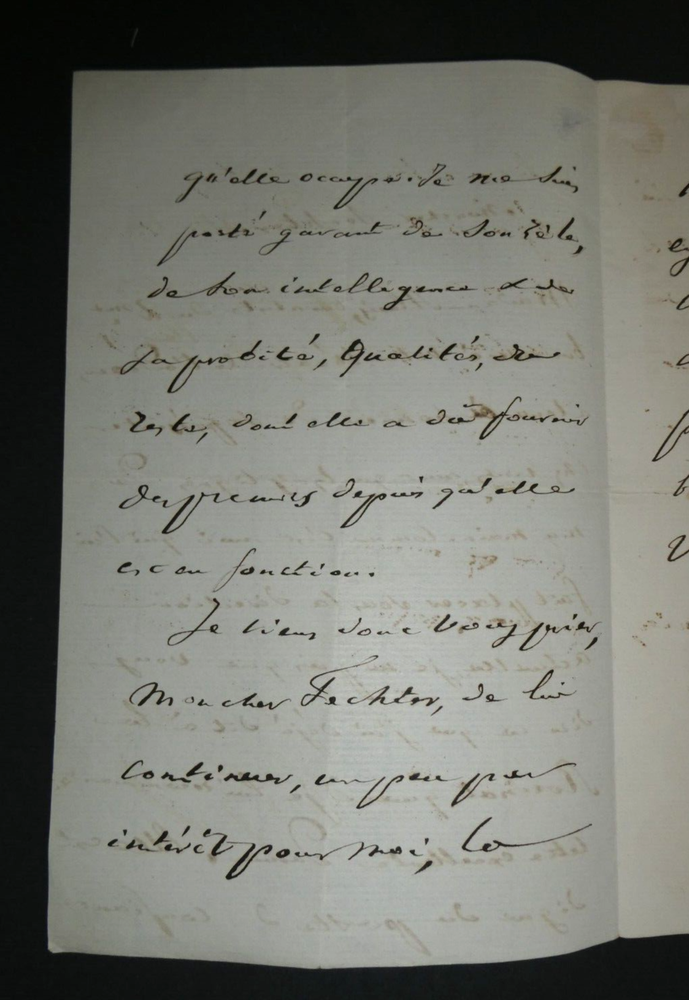 qu'elle occupe. Je me suis
porté garant de son zèle,
de son intelligence & de
sa probité, Qualités, du
reste, dont elle a dû fournir
des preuves depuis qu'elle
est en fonction.
Je viens donc vous prier,
Mon cher Fechter, de lui
continuer, un peu par
intérêt pour moi, la